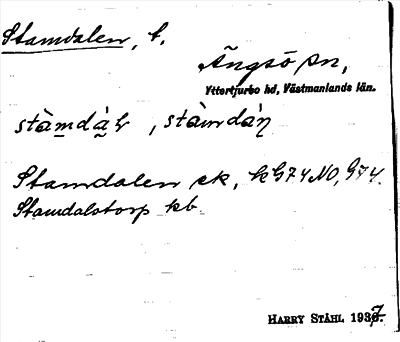 Stamdalen, t.
Ängsö sn,
Yttertjurbo hd, Västmanlands län.
stàmdàl, stàmdáṇ
Stamdalen ek, kG74NO, G74.
Stamdalstorp kb
HARRY STÅHL 1937.